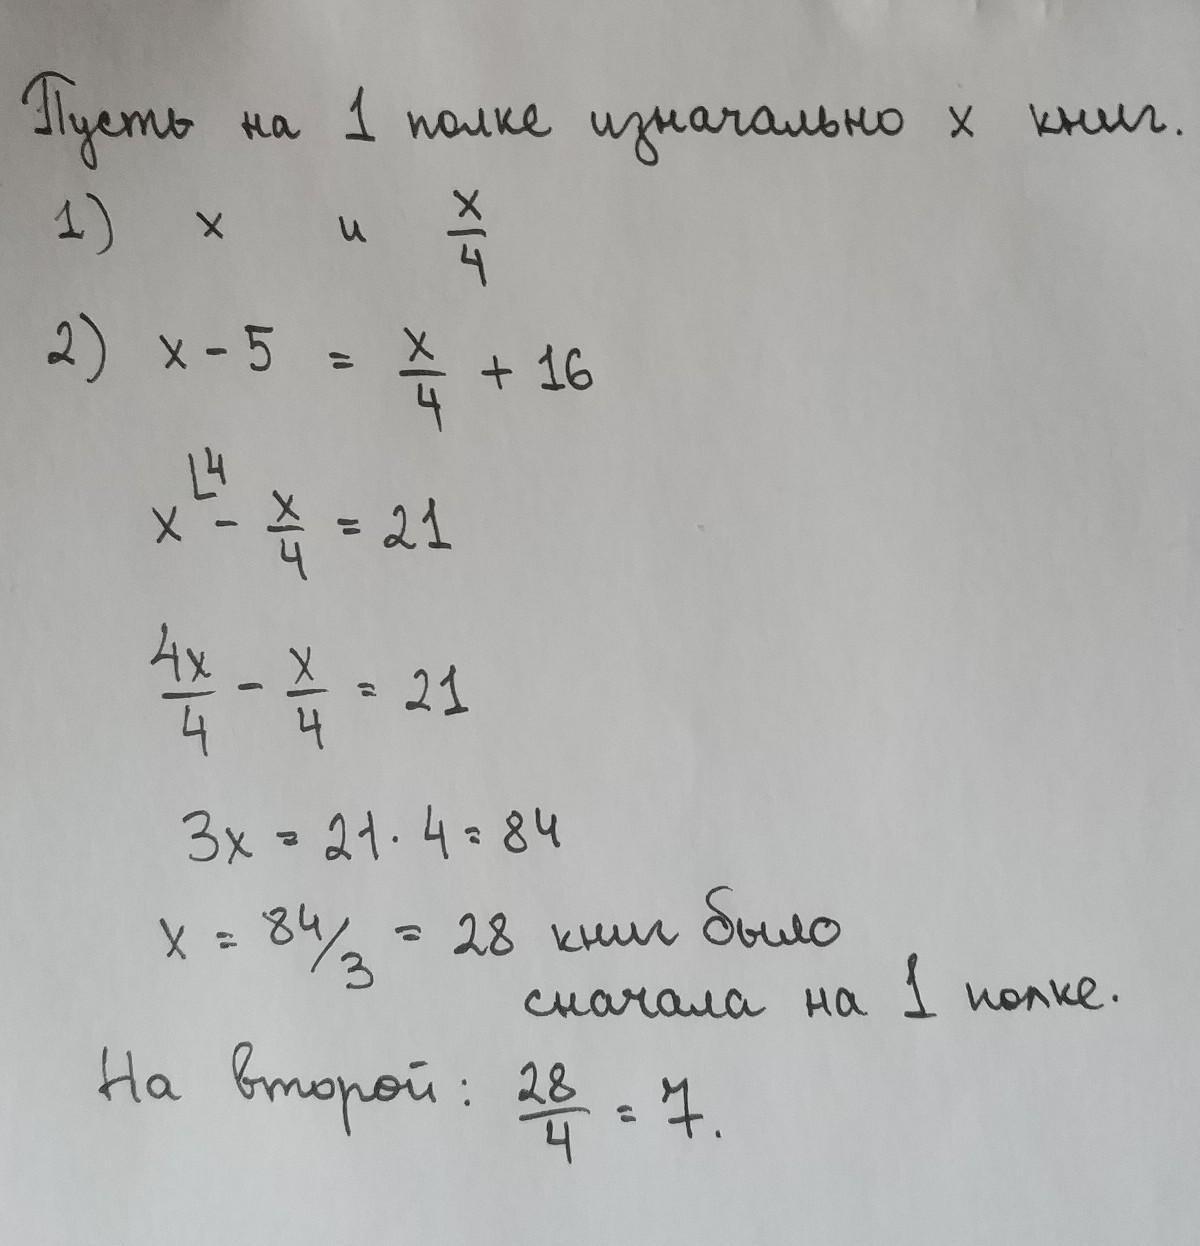 Пусть на 1 полке изначально x книг.
1) x и x/4
2) x - 5 = x/4 + 16
x⌊4 - x/4 = 21
4x/4 - x/4 = 21
3x = 21 · 4 = 84
x = 84/3 = 28 книг было
сначала на 1 полке.
На второй: 28/4 = 7.